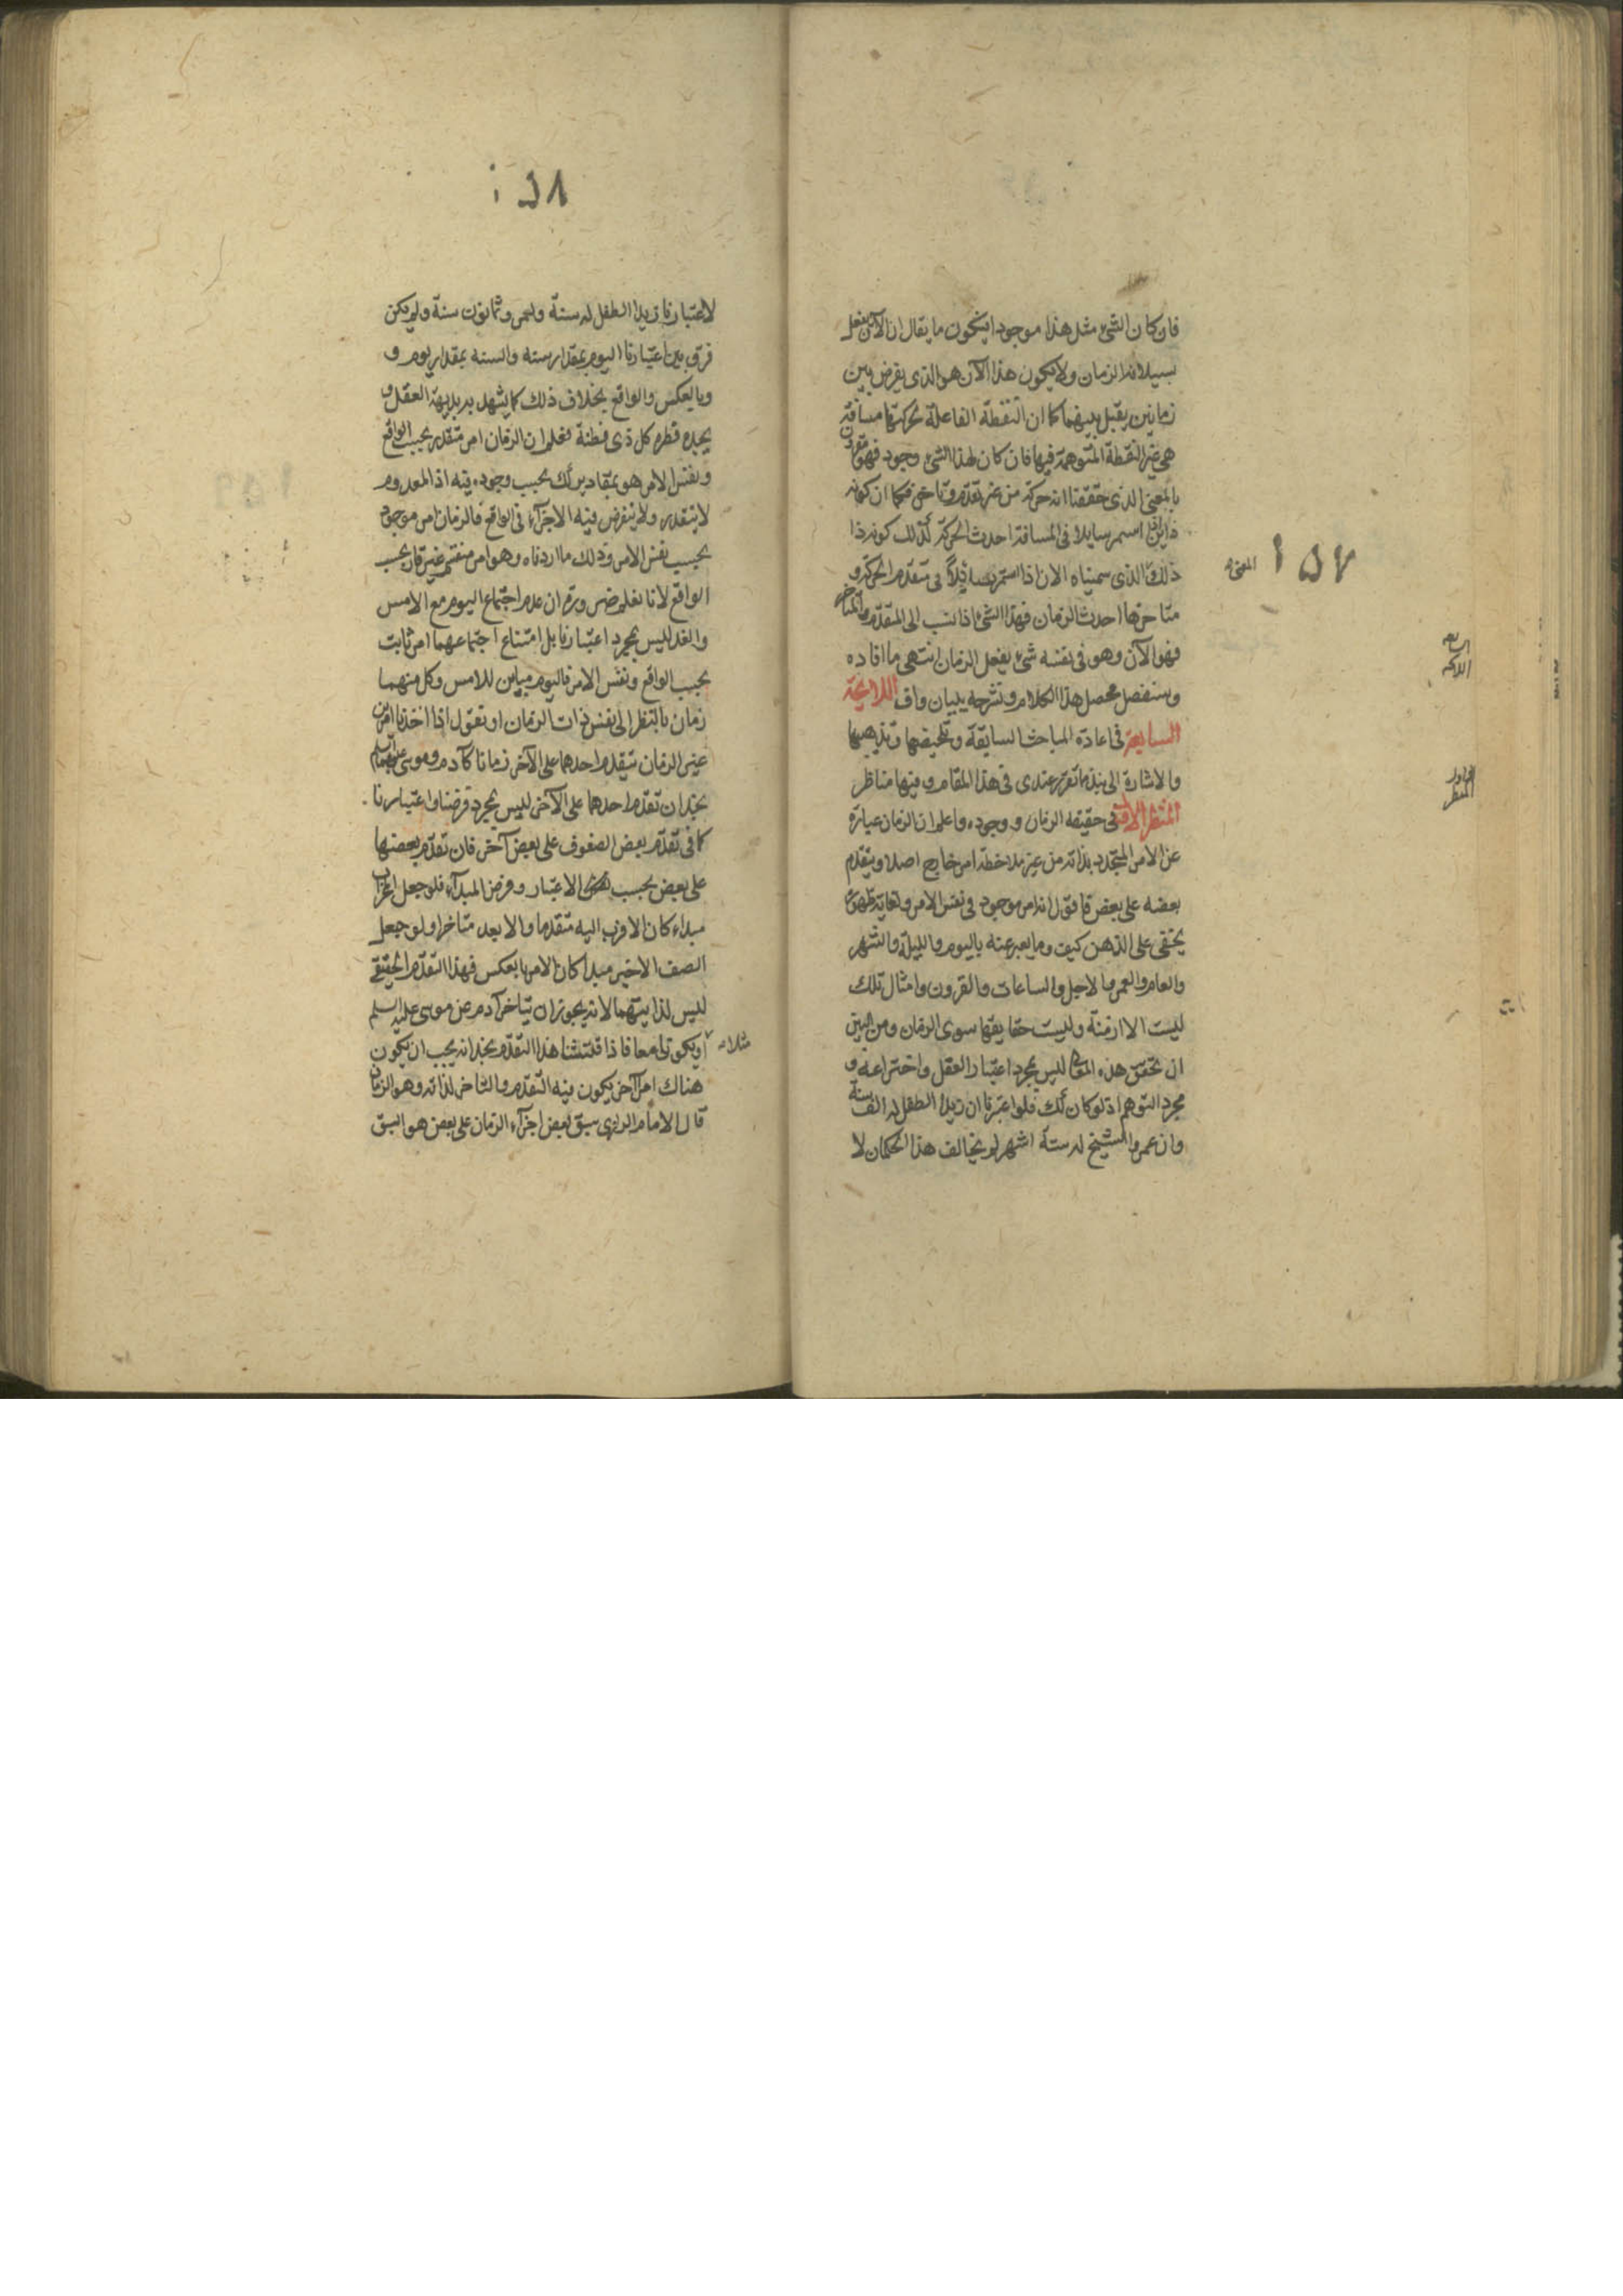 ١٥٧
فان كان الشیء مثل هذا موجودا فيكون ما يقال ان الآن يفعل
بسيلانه الزمان ولا يكون هذا الآن هو الذی يفرض بين
زمانين يقبل بينهما كما ان النقطة الفاعلة بحركتها مسافة
هی غير النقطة المتوهمة فيها فان كان لهذا الشیء وجود فهو مقرون
بالمعنی الذی حققنا انه حركة من غير تقدم وتاخر فكما ان كونه
ذا اين اذا استمر سايلا فی المسافة احدث الحركة كذلك كونه ذا
ذلك الذی سميناه الان اذا استمر سايلاً فی متقدم الحركة و
متاخرها احدث الزمان فهذا الشیء اذا نسب الی المتقدم والمتاخر
فهو الآن وهو فی نفسه شیء يفعل الزمان انتهی ما افاده
وسنفصل محصل هذا الكلام ونشرحه ببيان واف اللامعة
السابعة فی اعادة المباحث السابقة وتلخيصها وتذهيبها
والاشارة الی نبذ ما تقرر عندی فی هذا المقام وفيها مناظر
المنظر الاول فی حقيقة الزمان ووجوده واعلم ان الزمان عبارة
عن الامر المتجدد بذاته من غير ملاحظة امر خارج اصلا ويتقدم
بعضه علی بعض فاقول انه امر موجود فی نفس الامر ولغاية ظهوره
يخفی علی الذهن كيف وما يعبر عنه باليوم والليلة والشهر
والعام والعمر والاجل والساعات والقرون وامثال تلك
ليست الا ازمنة وليست حقايقها سوی الزمان ومن البين
ان تحقق هذه المعانی ليس بمجرد اعتبار العقل واختراعه و
مجرد التوهم اذ لو كان كذلك فلو اعتبرنا ان زيدا الطفل له الف سنة
وان عمروا الشيخ له ستة اشهر لم يخالف هذا الحكمان لا
١٥٨
لاعتبارنا زيدا الطفل له سنة ولعمرو ثمانون سنة ولم يكن
فرق بين اعتبارنا اليوم بمقدار سنة والسنة بمقدار يوم و
وبالعكس والواقع بخلاف ذلك كما يشهد به بديهة العقل و
يجده فطرة كل ذی فطنة فعلم ان الزمان امر متقدر بحسب الواقع
ونفس الامر هو بمقادير كك بحسب وجوده فيه اذ المعدوم
لا يتقدر ولا يتفرض فيه الاجزآء فی الواقع فالزمان امر موجود
بحسب نفس الامر وذلك ما اردناه وهو امر منقسم غير قار بحسب
الواقع لانا نعلم ضرورة ان عدم اجتماع اليوم مع الامس
والغد ليس بمجرد اعتبارنا بل امتناع اجتماعهما امر ثابت
بحسب الواقع ونفس الامر فاليوم مباين للامس وكل منهما
زمان بالنظر الی نفس ذات الزمان او نقول اذا اخذنا امرين
غير الزمان يتقدم احدهما علی الآخر زمانا كآدم وموسی عليهما السلم
نجد ان تقدم احدهما علی الآخر ليس بمجرد فرضنا واعتبارنا
كما فی تقدم بعض الصفوف علی بعض آخر فان تقدم بعضها
علی بعض بحسب الاعتبار وفرض المبدآء فلو جعل المحراب
مبداء كان الاقرب اليه متقدما والابعد متاخرا ولو جعل
الصف الاخير مبدا كان الامر بالعكس فهذا التقدم الحقيقی
ليس لذاتيتهما لانه يجوز ان يتاخر آدم عن موسی عليه السلم
او يكونا معا فاذا فتشنا هذا التقدم نجد انه يجب ان يكون
هناك امر آخر يكون فيه التقدم والتاخر لذاته وهو الزمان
قال الامام الرازی سبق بعض اجزآء الزمان علی بعض هو السبق
مثلا